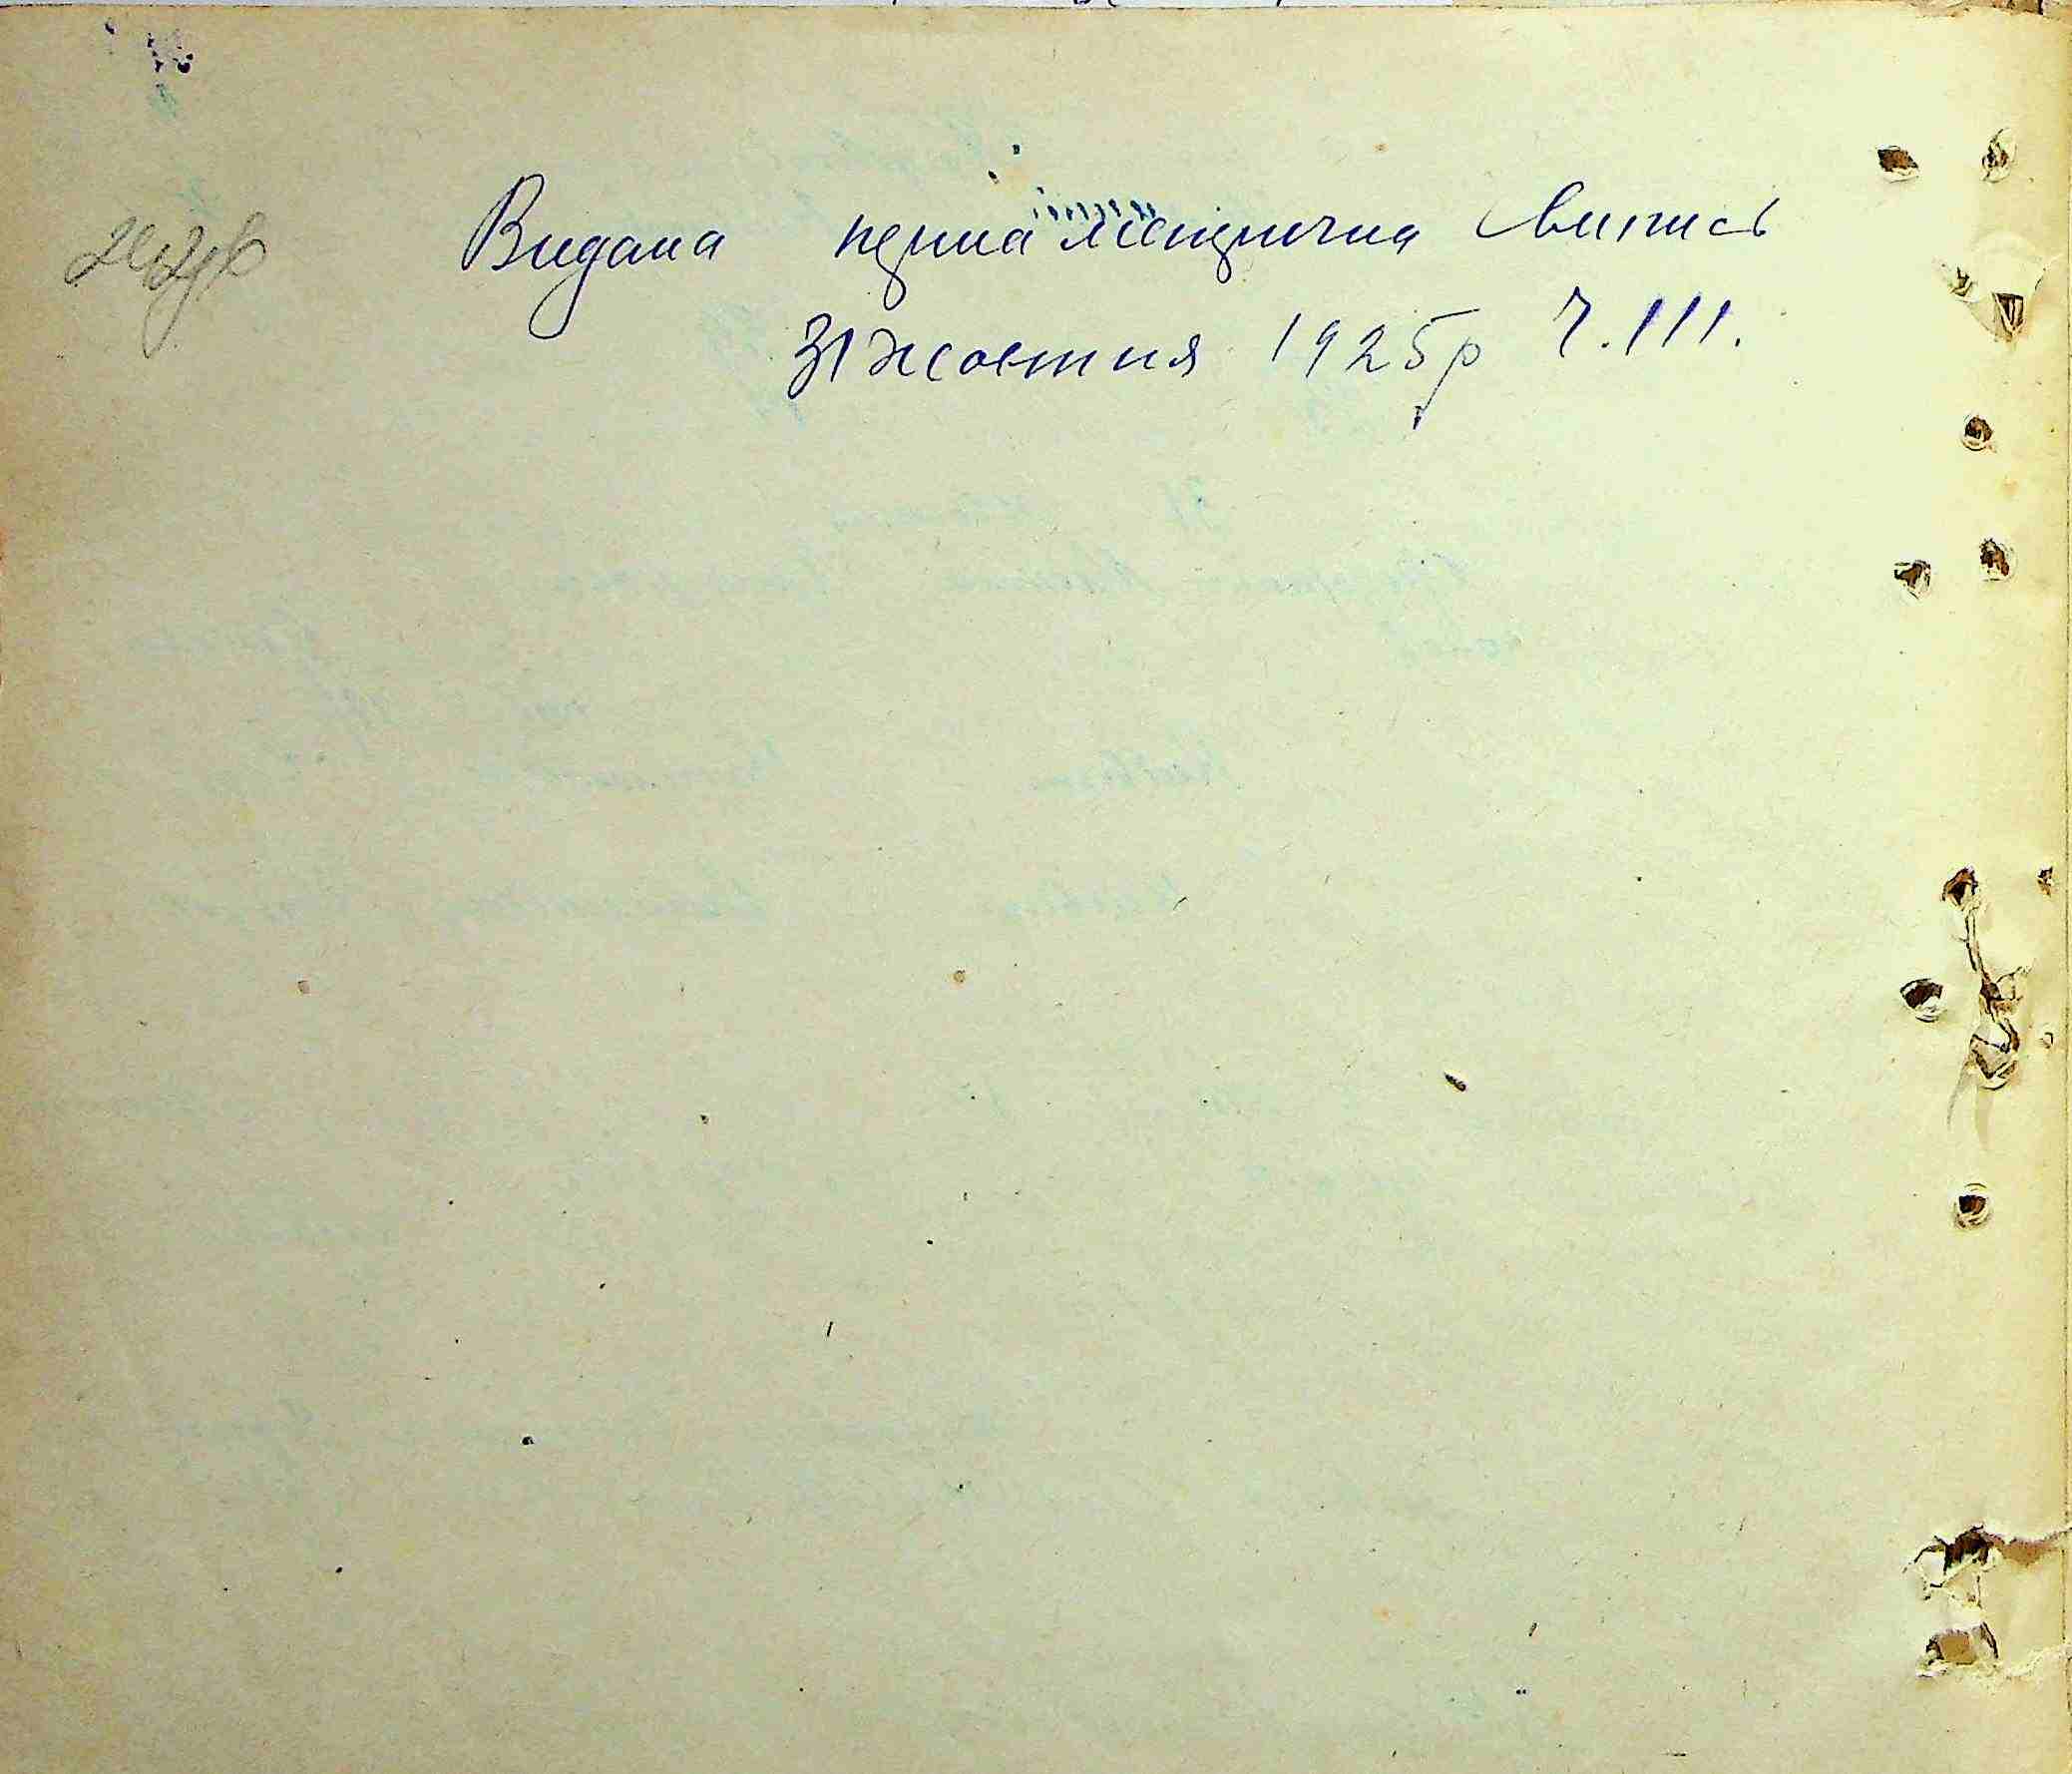 Видана перша метрична випись
31 жовтня 1925 р Ч. 111.